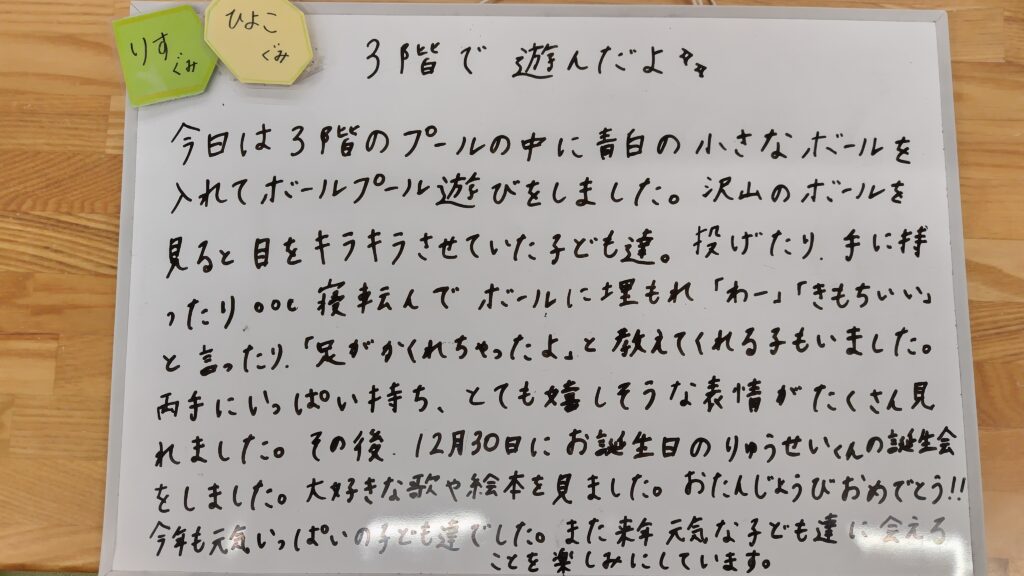 りす
ぐみ
ひよこ
ぐみ
3階で 遊んだよ
今日は3階のプールの中に青白の小さなボールを
入れてボールプール遊びをしました。沢山のボールを
見ると目をキラキラさせていた子ども達。投げたり、手に持
ったり。。。寝転んでボールに埋もれ「わー」「きもちいい」
と言ったり、「足がかくれちゃったよ」と教えてくれる子もいました。
両手にいっぱい持ち、とても嬉しそうな表情がたくさん見
れました。その後、12月30日にお誕生日のりゅうせいくんの誕生会
をしました。大好きな歌や絵本を見ました。おたんじょうびおめでとう!!
今年も元気いっぱいの子ども達でした。また来年元気な子ども達に会える
ことを楽しみにしています。